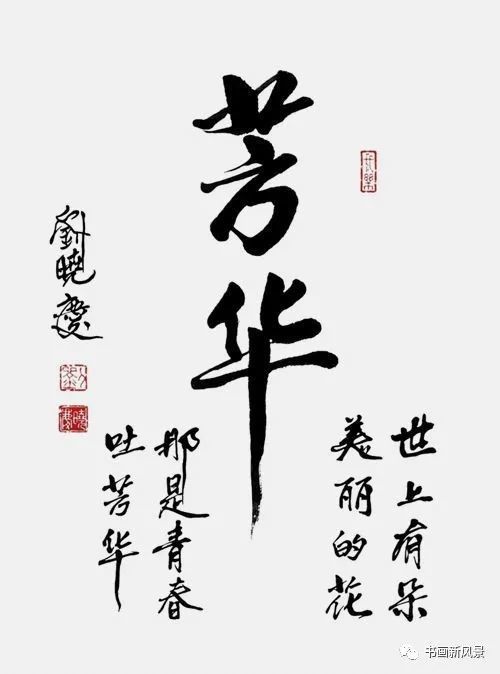 芳华
世上有朵
美丽的花
那是青春
吐芳华
劉曉慶
书画新风景